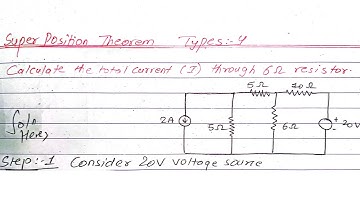 Super Position Theorem Types:-4
Calculate the total current (I) through 6Ω resistor.
5Ω 20Ω
2A 5Ω 6Ω + - 20V
Soln
Here,
Step:-1 Consider 20V voltage source